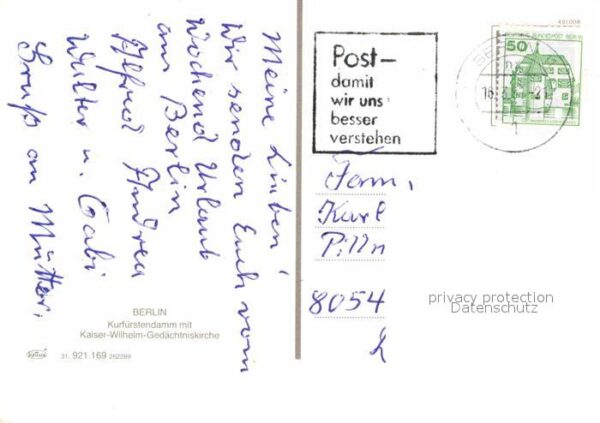 Meine Lieben!
Wir senden Euch vom
Wochend Urlaub
aus Berlin
Alfred Andrea
Walter u. Gabi
Gruß an Mutter.
BERLIN
Kurfürstendamm mit
Kaiser-Wilhelm-Gedächtniskirche
31. 921.169 262289
Post-
damit
wir uns
besser
verstehen
491008
DEUTSCHE BUNDESPOST BERLIN
50
Fam.
Karl
Pilln
8054
privacy protection
Datenschutz